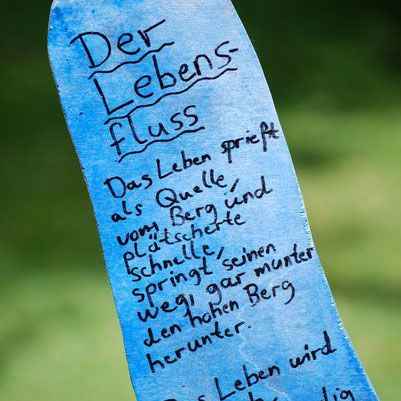 Der
Lebens-
fluss
Das Leben sprießt
als Quelle,
vom Berg und
plätscherte
schnelle,
springt, seinen
weg, gar munter
den hohen Berg
herunter.
Das Leben wird